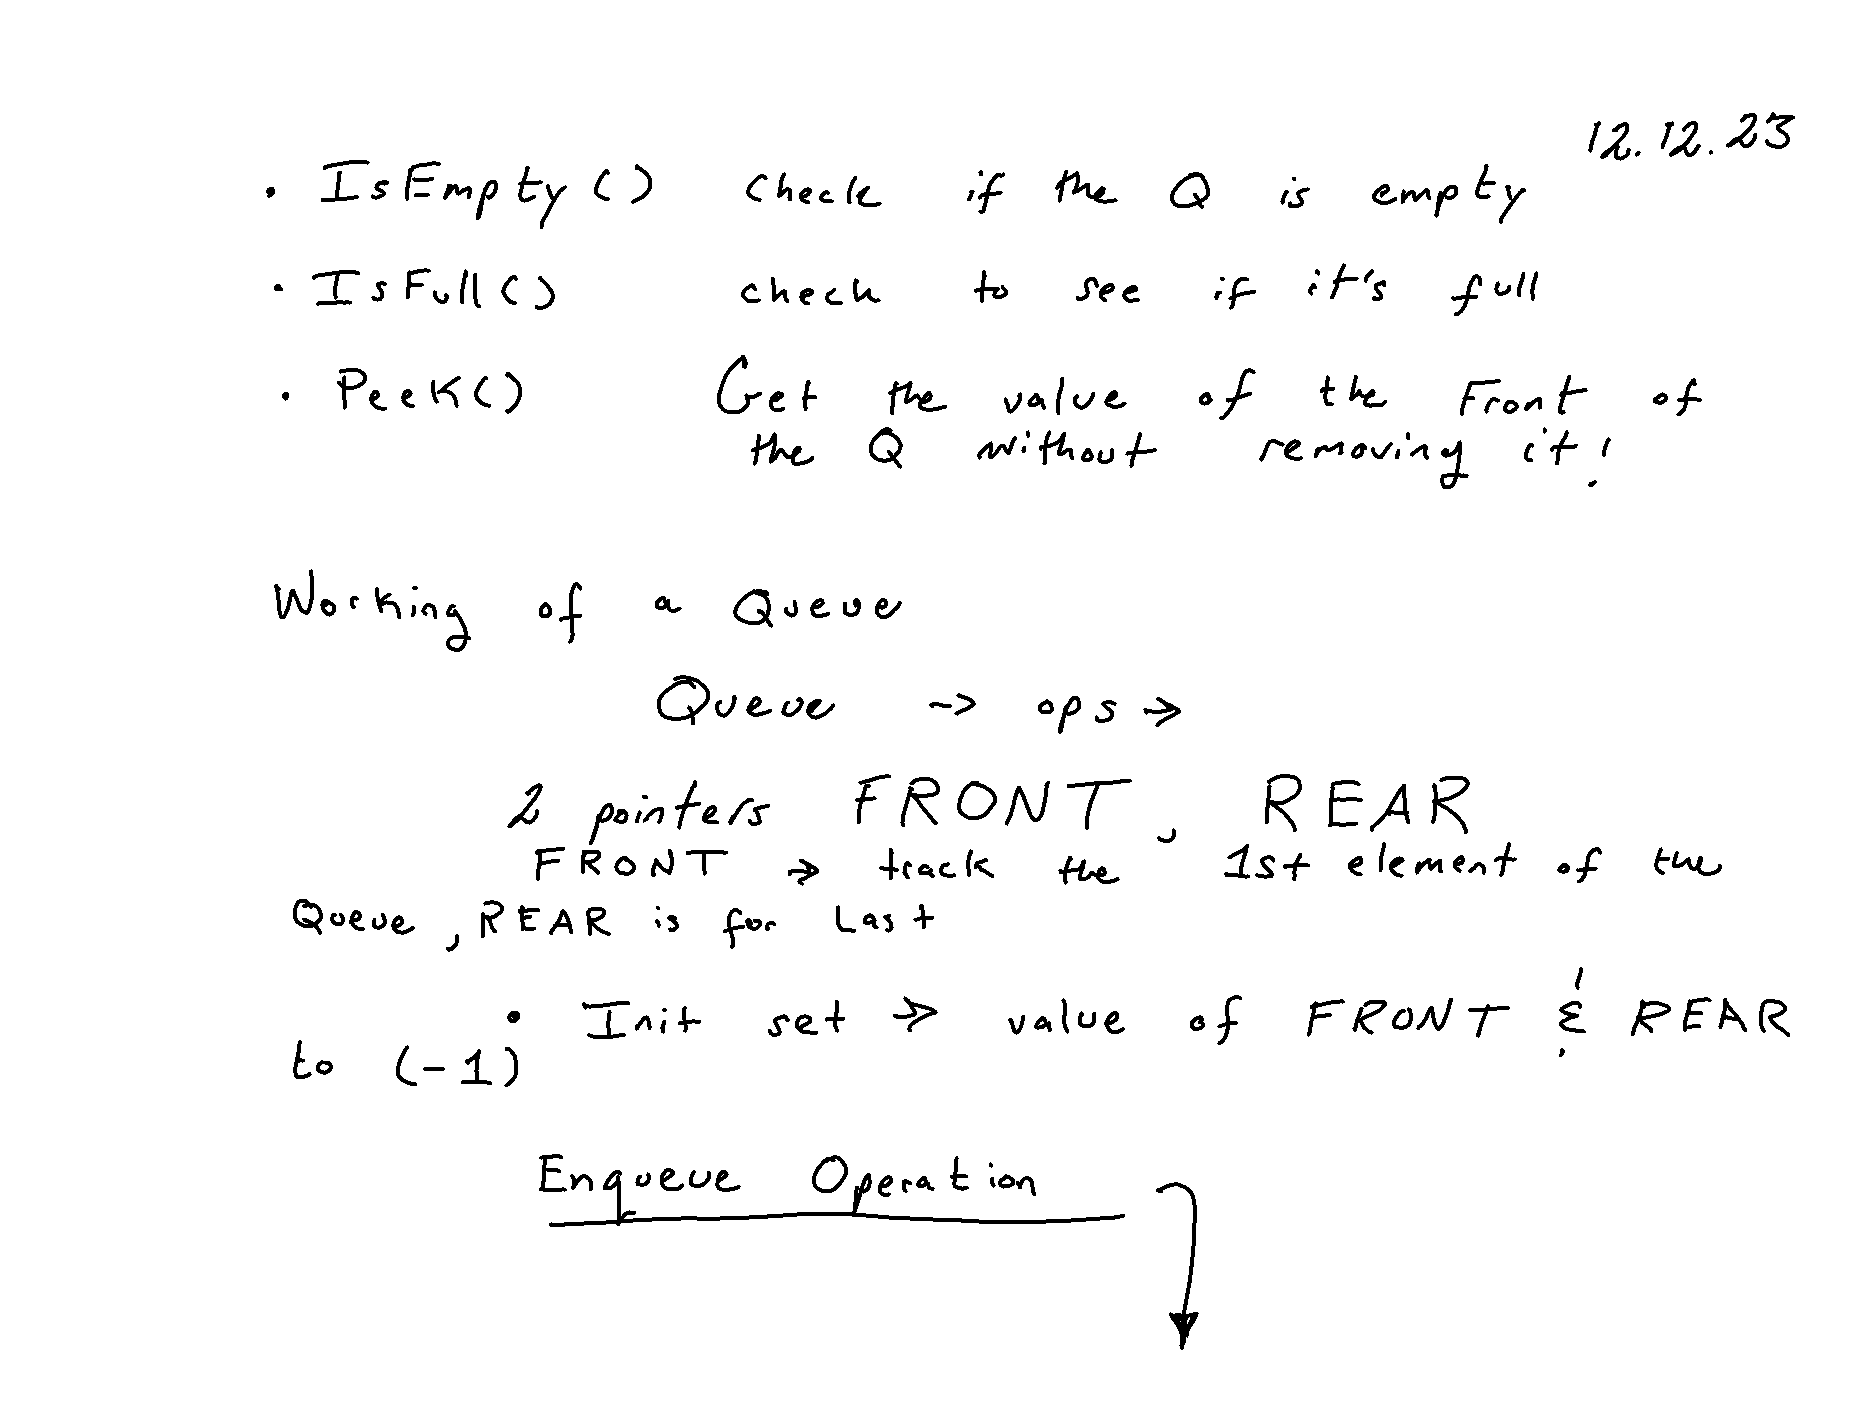 12.12.23
• IsEmpty() Check if the Q is empty
• IsFull() check to see if it's full
• PeeK() Get the value of the Front of
the Q without removing it!
Working of a Queue
Queue -> ops →
2 pointers FRONT, REAR
FRONT → track the 1st element of the
Queue, REAR is for Last
• Init set → value of FRONT & REAR
to (-1)
Enqueue Operation